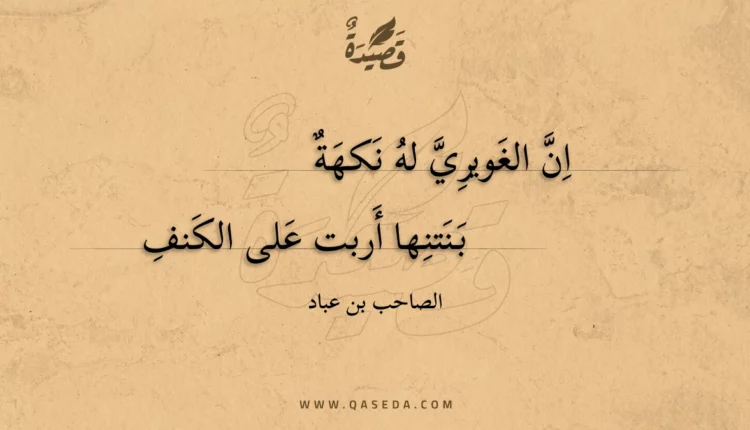 قَصِيْدَةٌ
اِنَّ الغَويرِيَّ لهُ نَكهَةٌ
بَنَتنِها أَربت عَلى الكَنفِ
الصاحب بن عباد
WWW.QASEDA.COM